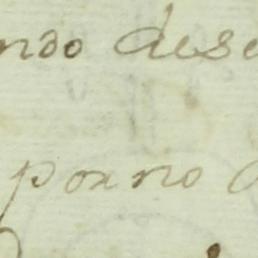 ndo dese
por no